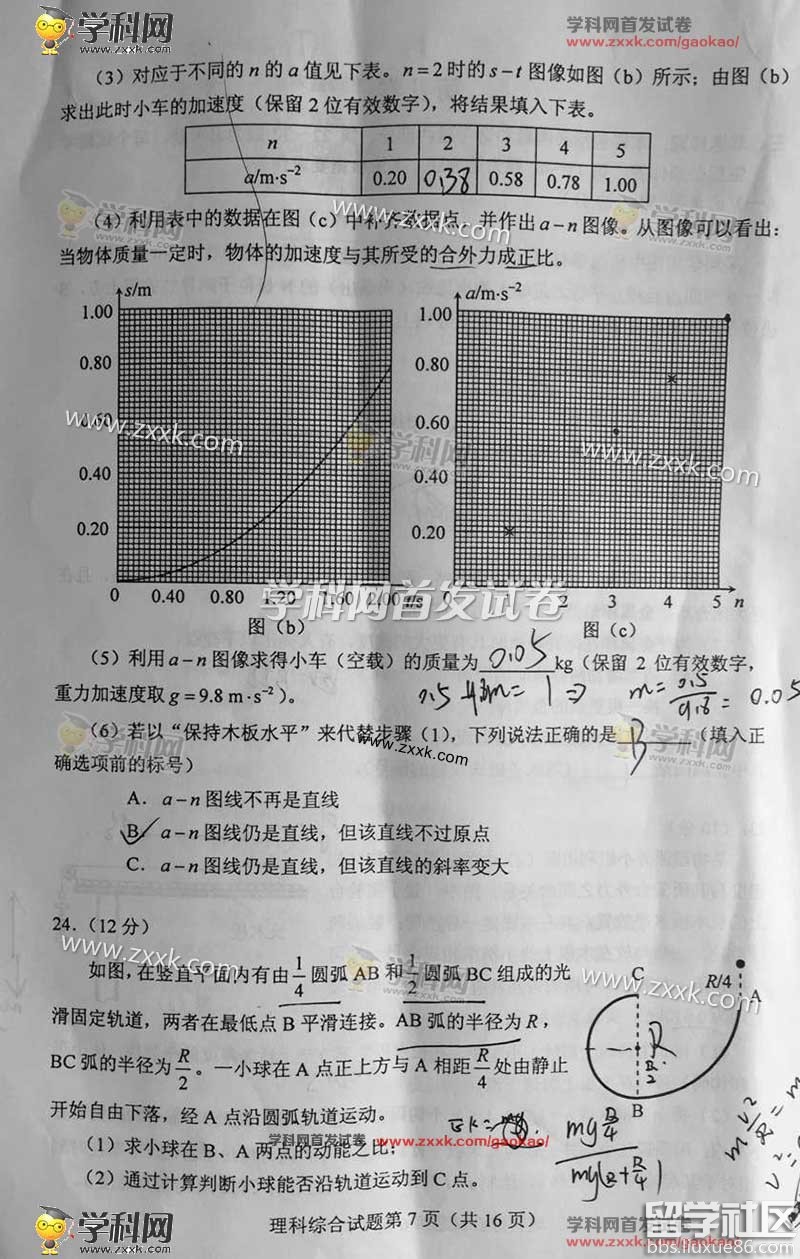 学科网 学科网首发试卷
www.zxxk.com www.zxxk.com/gaokao/
(3)对应于不同的n的a值见下表。n=2时的s-t图像如图(b)所示;由图(b)
求出此时小车的加速度(保留2位有效数字),将结果填入下表。
n 1 2 3 4 5
a/m·s⁻² 0.20 0.38 0.58 0.78 1.00
www.zxxk.com
学科网 学科网
(4)利用表中的数据在图(c)中补齐数据点,并作出a-n图像。从图像可以看出:
当物体质量一定时,物体的加速度与其所受的合外力成正比。
s/m a/m·s⁻²
1.00 1.00
0.80 0.80
0.60 0.60
www.zxxk.com 学科网 www.zxxk.com
0.40 0.40
0.20 0.20
学科网首发试卷
0 0.40 0.80 1.20 1.60 2.00 t/s 0 2 3 4 5 n
图(b) 图(c)
(5)利用a-n图像求得小车(空载)的质量为 0.05 kg(保留2位有效数字,
重力加速度取g=9.8 m·s⁻²)。
(6)若以“保持木板水平”来代替步骤(1),下列说法正确的是 B (填入正
www.zxxk.com
确选项前的标号)
A.a-n图线不再是直线
B.a-n图线仍是直线,但该直线不过原点
C.a-n图线仍是直线,但该直线的斜率变大
24.(12分)
www.zxxk.com 学科网 www.zxxk.com
如图,在竖直平面内有由1/4圆弧AB和1/2圆弧BC组成的光
滑固定轨道,两者在最低点B平滑连接。AB弧的半径为R,
BC弧的半径为R/2。一小球在A点正上方与A相距R/4处由静止
开始自由下落,经A点沿圆弧轨道运动。
C R/4 A
R
R/2
B
学科网首发试卷 www.zxxk.com/gaokao/
(1)求小球在B、A两点的动能之比;
(2)通过计算判断小球能否沿轨道运动到C点。
学科网 理科综合试题第7页(共16页) 学科网首发试卷
www.zxxk.com www.zxxk.com/gaokao/
留学社区
bbs.liuxue86.com